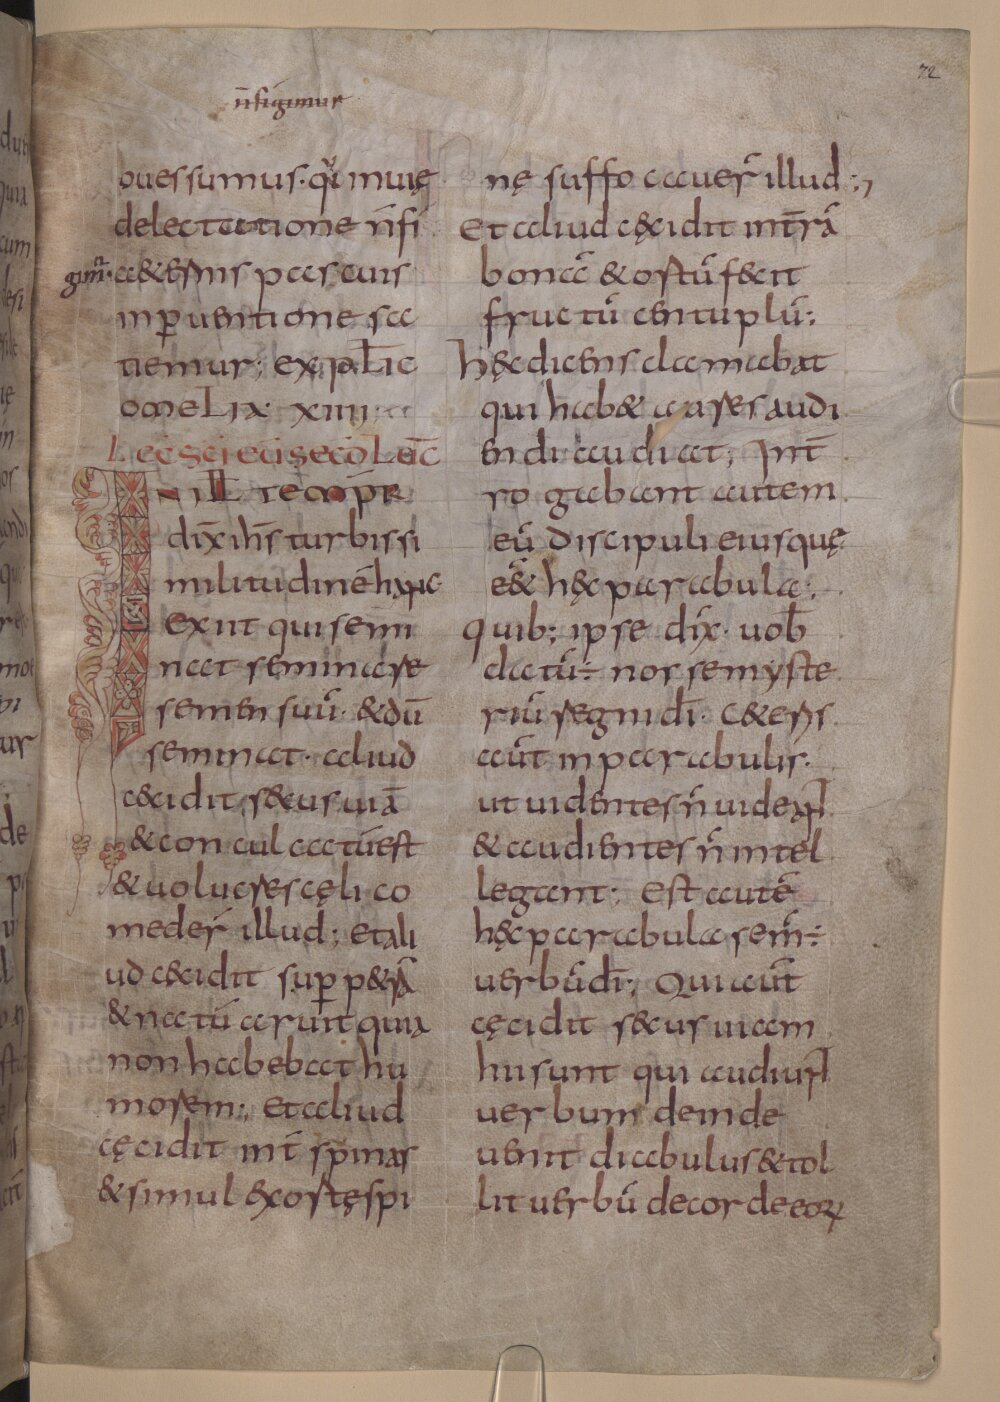 72
n̄figimur
oues sumus· qͥ in uię
delectatione n̄fi
gim̄· a&ernis pascuis
in ꝑuentione sa
tiemur; expl̄ic
omelix· xiiii·
Lec sci ec̄i secd̄ Luc̄
In ill tempr̄
dix̄ ih̄s turbis si
militudinē hanc
exiit qui semi
nat seminare
semen suū· & dū
seminat· aliud
cęcidit secus uiā
& conculcatū est
& uolucres cęli co
meder̄ illud; et ali
ud cęcidit suꝑ p&rā
& natū aruit quia
non habebat hu
morem; Et aliud
cęcidit int̄ spinas
& simul exortę spi
nę suffocauer̄ illud;
Et aliud cęcidit int̄rā
bonā & ortū fecit
fructū centuplū;
hęc dicens clamabat
qui hab& aures audi
endi audiat; Int̄
rogabant autem
eū discipuli eius quę
ēe& hęc parabula;
quib; ipse dix̄· uob̄
datū÷ nosse myste
riū regni dī· C&eris
aūt in parabulis·
ut uidentes n̄ uideant
& audientes n̄ intel
legant; Est autē
hęc parabula sem̄÷
uerbū dī; Qui aūt
cęcidit secus uiam
hii sunt qui audiunt
uerbum deinde
uenit diabulus & tol
lit uerbū de corde eoꝝ